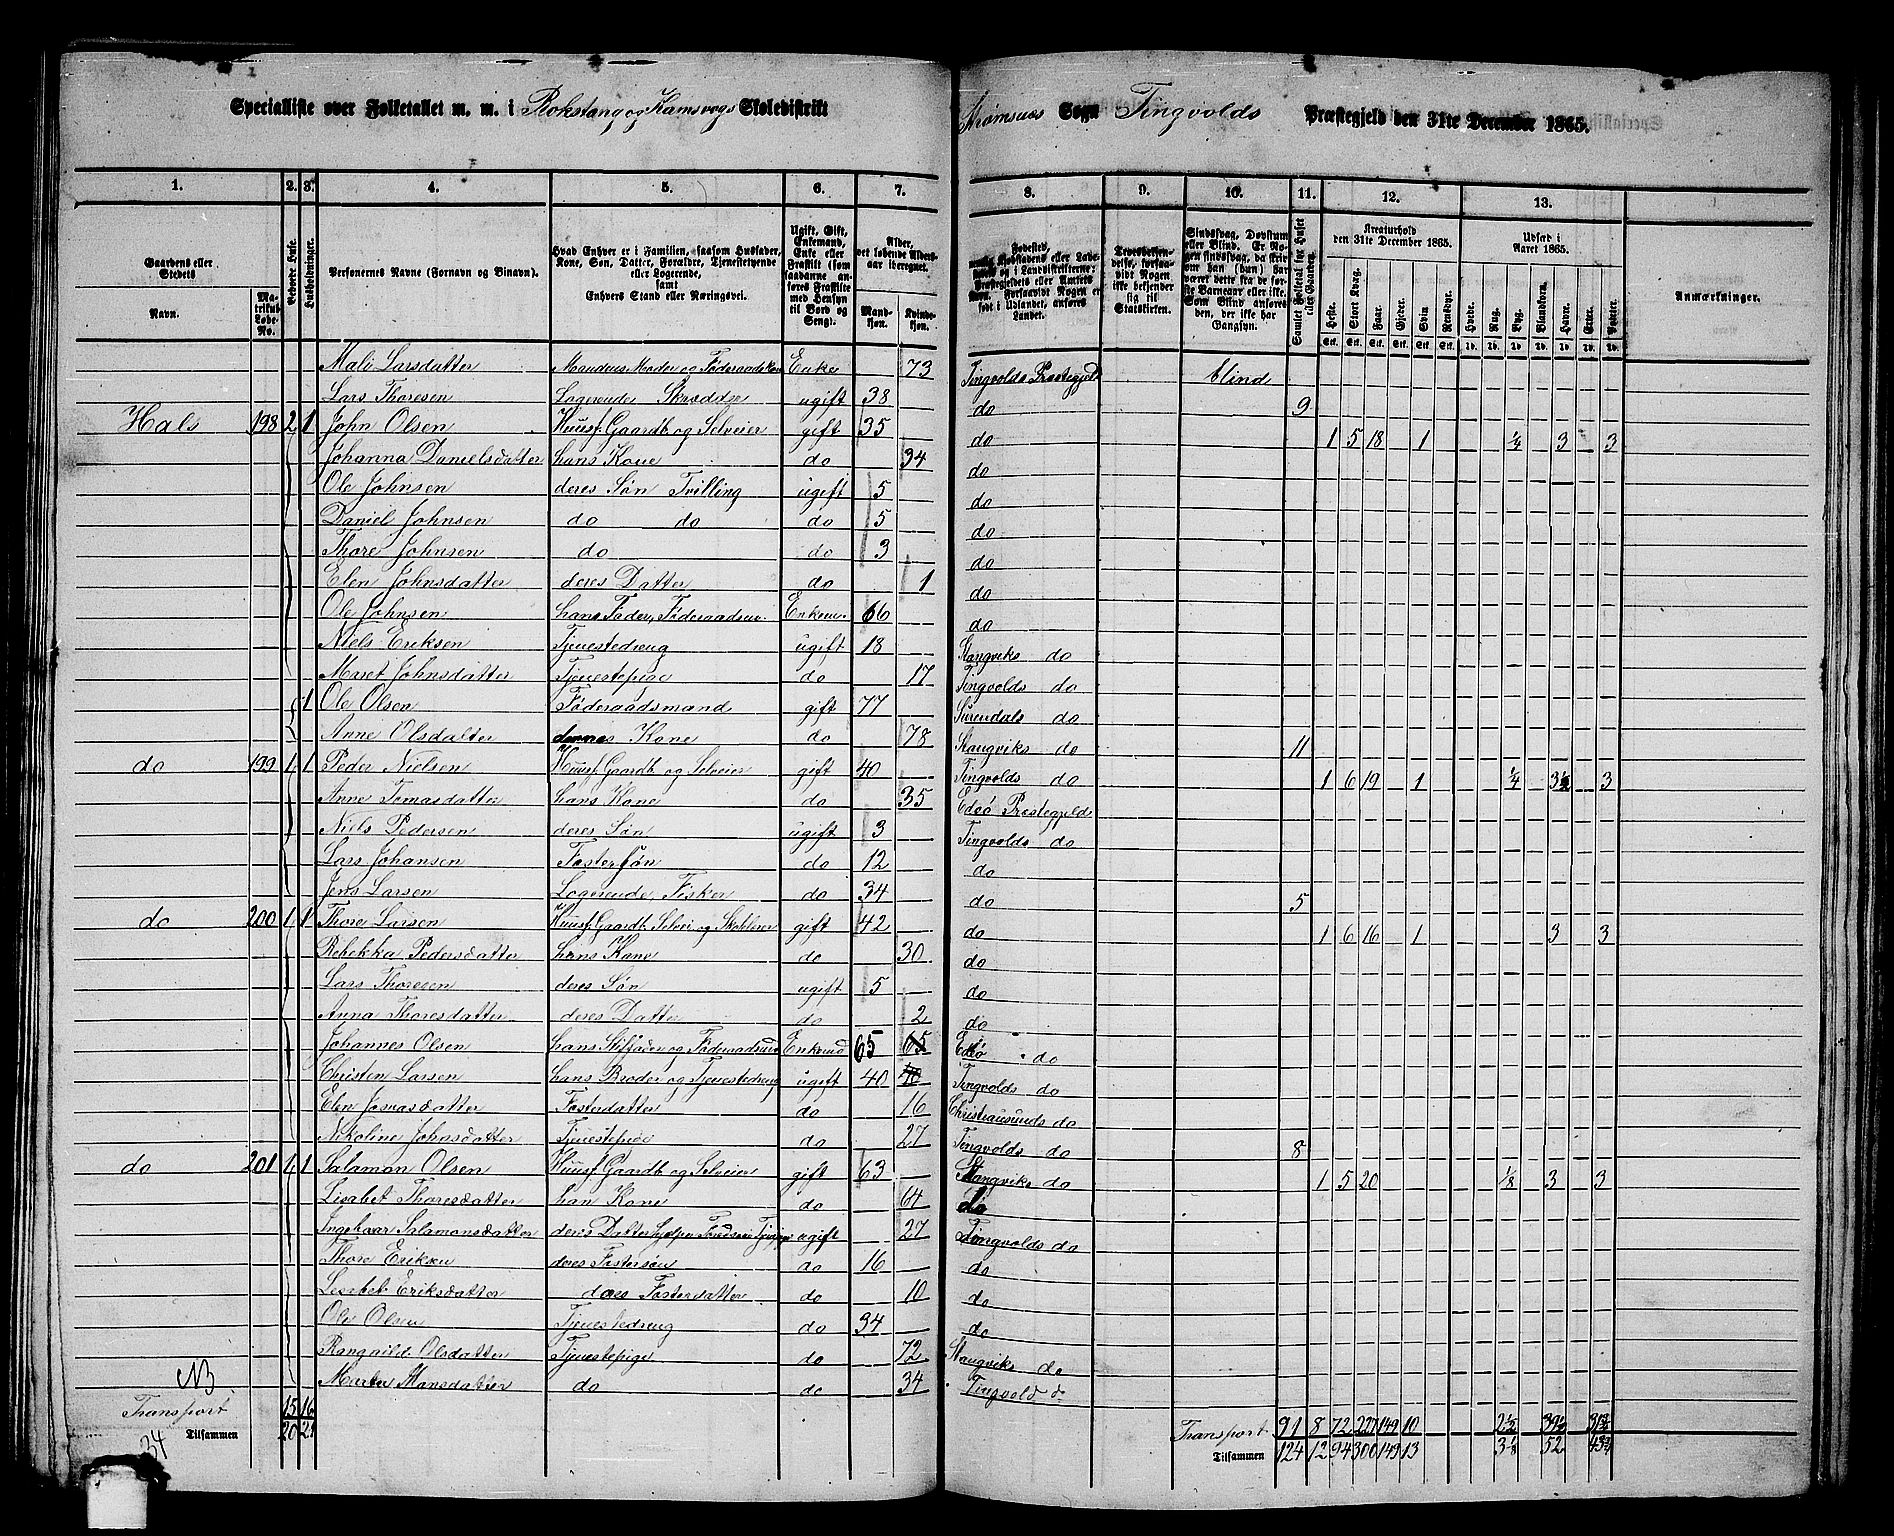 Specialliste over Folketallet m. m. i Rokstang og Hamsvogs Skoledistrikt Strømsnes Sogn Tingvolds Præstegjeld den 31te December 1865.
1. 2. 3. 4. 5. 6. 7. 8. 9. 10. 11. 12. 13.
Gaardens eller Stedets Navn. Matrikul Løbe-No. Beboede Huse. Husholdninger. Personernes Navne (Fornavn og Binavn). Hvad Enhver er i Familien, saasom Husfader, Kone, Søn, Datter, Forældre, Tjenestetyende eller Logerende, samt Enhvers Stand eller Næringsvei. Ugift, Gift, Enkemand, Enke eller Fraskilt (som saadanne anføres Fraskilte med Hensyn til Bord og Seng). Alder, det løbende Aldersaar iberegnet. Mandkjøn. Kvindekjøn.
Kreaturhold den 31te December 1865. Udsæd i Aaret 1865. Anmærkninger.
Heste. Stort Kvæg. Faar. Gjeder. Svin Rensdyr. Hvede. Rug. Byg. Blandkorn. Havre. Erter. Poteter.
Mali Larsdatter Mandens Moder og Føderaadskone Enke 73 Tingvolds Præstegjeld blind
Lars Thoresen Logerende Skrædder ugift 38 do 9
Hals 198 2 1 John Olsen Huusf. Gaardb og Selveier gift 35 do 1 5 18 1 ¼ 3 3
Johanna Danielsdatter hans Kone do 34 do
Ole Johnsen deres Søn Tvilling ugift 5 do
Daniel Johnsen do do do 5 do
Thore Johnsen do do 3 do
Elen Johnsdatter deres Datter do 1 do
Ole Johnsen hans Fader, Føderaadsm. Enkem. 66 do
Niels Eriksen Tjenestedreng ugift 18 Stangviks do
Maret Johnsdatter Tjenestepige do 17 Tingvolds do
1 Ole Olsen Føderaadsmand gift 77 Surendals do
Anne Olsdatter dennes Kone do 78 Stangviks do 11
do 199 1 1 Peder Nielsen Huusf. Gaardb og Selveier gift 40 Tingvolds do 1 6 19 1 ¼ 3½ 3
Anne Tomasdatter hans Kone do 35 Edøø Præstegjeld
Niels Pedersen deres Søn ugift 3 Tingvolds do
Lars Johansen Fostersøn do 12 do
Jens Larsen Logerende, Fisker do 34 do 5
do 200 1 1 Thore Larsen Huusf. Gaardb, Selvei og Skolelærer gift 42 do 1 6 16 1 3 3
Rebekka Pedersdatter hans Kone do 30 do
Lars Thoresen deres Søn ugift 5 do
Anna Thoresdatter deres Datter do 2 do
Johannes Olsen hans Stiffader og Føderaadsmd Enkemd 65 65 Edøø do
Christen Larsen hans Broder og Tjenestedreng ugift 40 40 Tingvolds do
Elen Jonasdatter Fosterdatter do 16 Christiansunds do
Nikoline Johnsdatter Tjenestepige do 27 Tingvolds do 8
do 201 1 1 Salamon Olsen Huusf. Gaardb og Selveier gift 63 Stangviks do 1 5 20 ⅛ 3 3
Lisabet Thoresdatter han Kone do 64 do
Ingebaar Salamonsdatter deres Datter hjelper ugift 27 Tingvolds do
Thore Eriksen deres Fostersøn do 16 do
Lisabet Eriksdatter deres Fosterdatter do 10 do
Ole Olsen Tjenestedreng do 34 do
Rangnild Olsdatter Tjenestepige do 72 Stangviks do
Marta Hansdatter do do 34 Tingvold d
NB
Transport 15 16 Transport 91 8 72 227 149 10 2½ 39½ 31¾
34 Tilsammen 20 21 Tilsammen 124 12 94 300 149 13 3⅛ 52 43¾